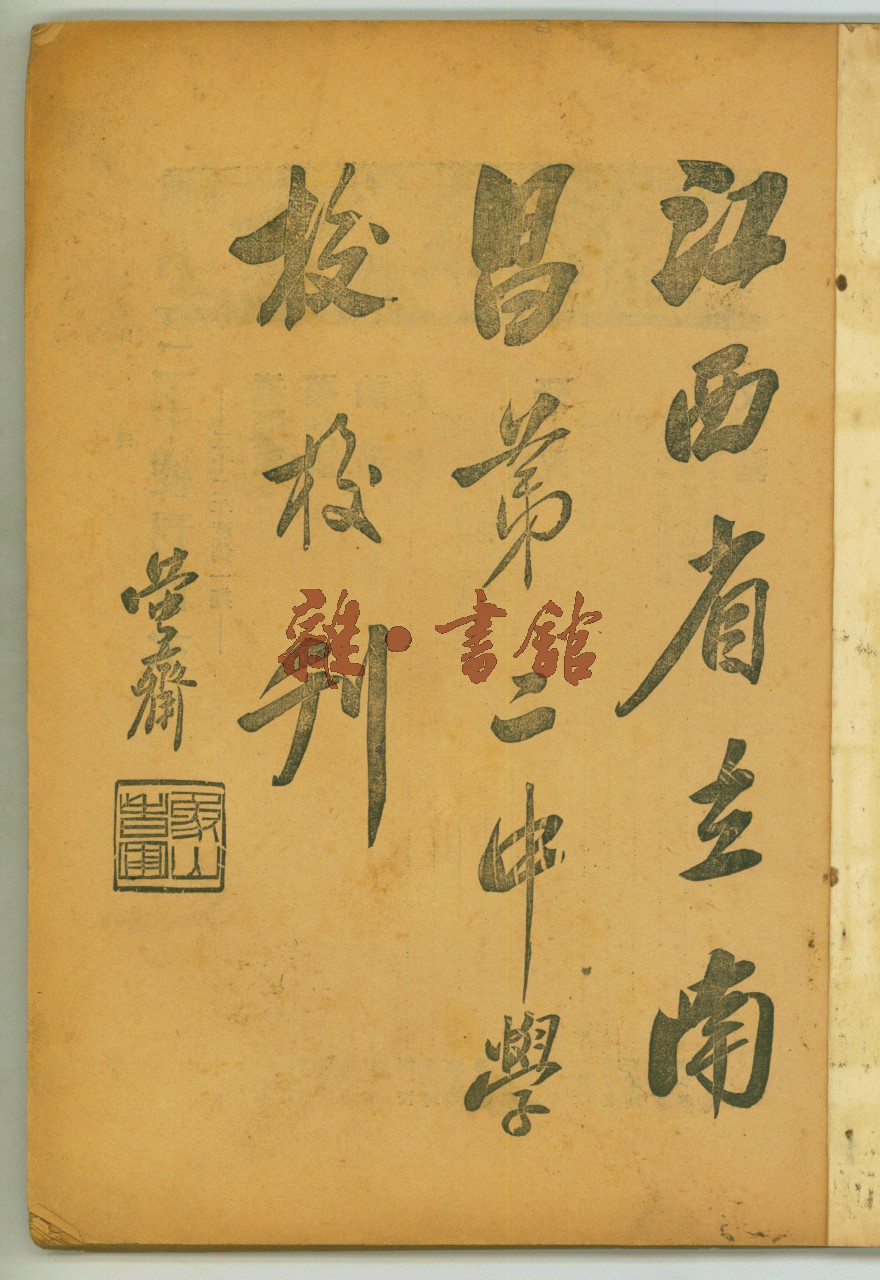 江西省立南
昌第二中學
校校刊
雜·書館